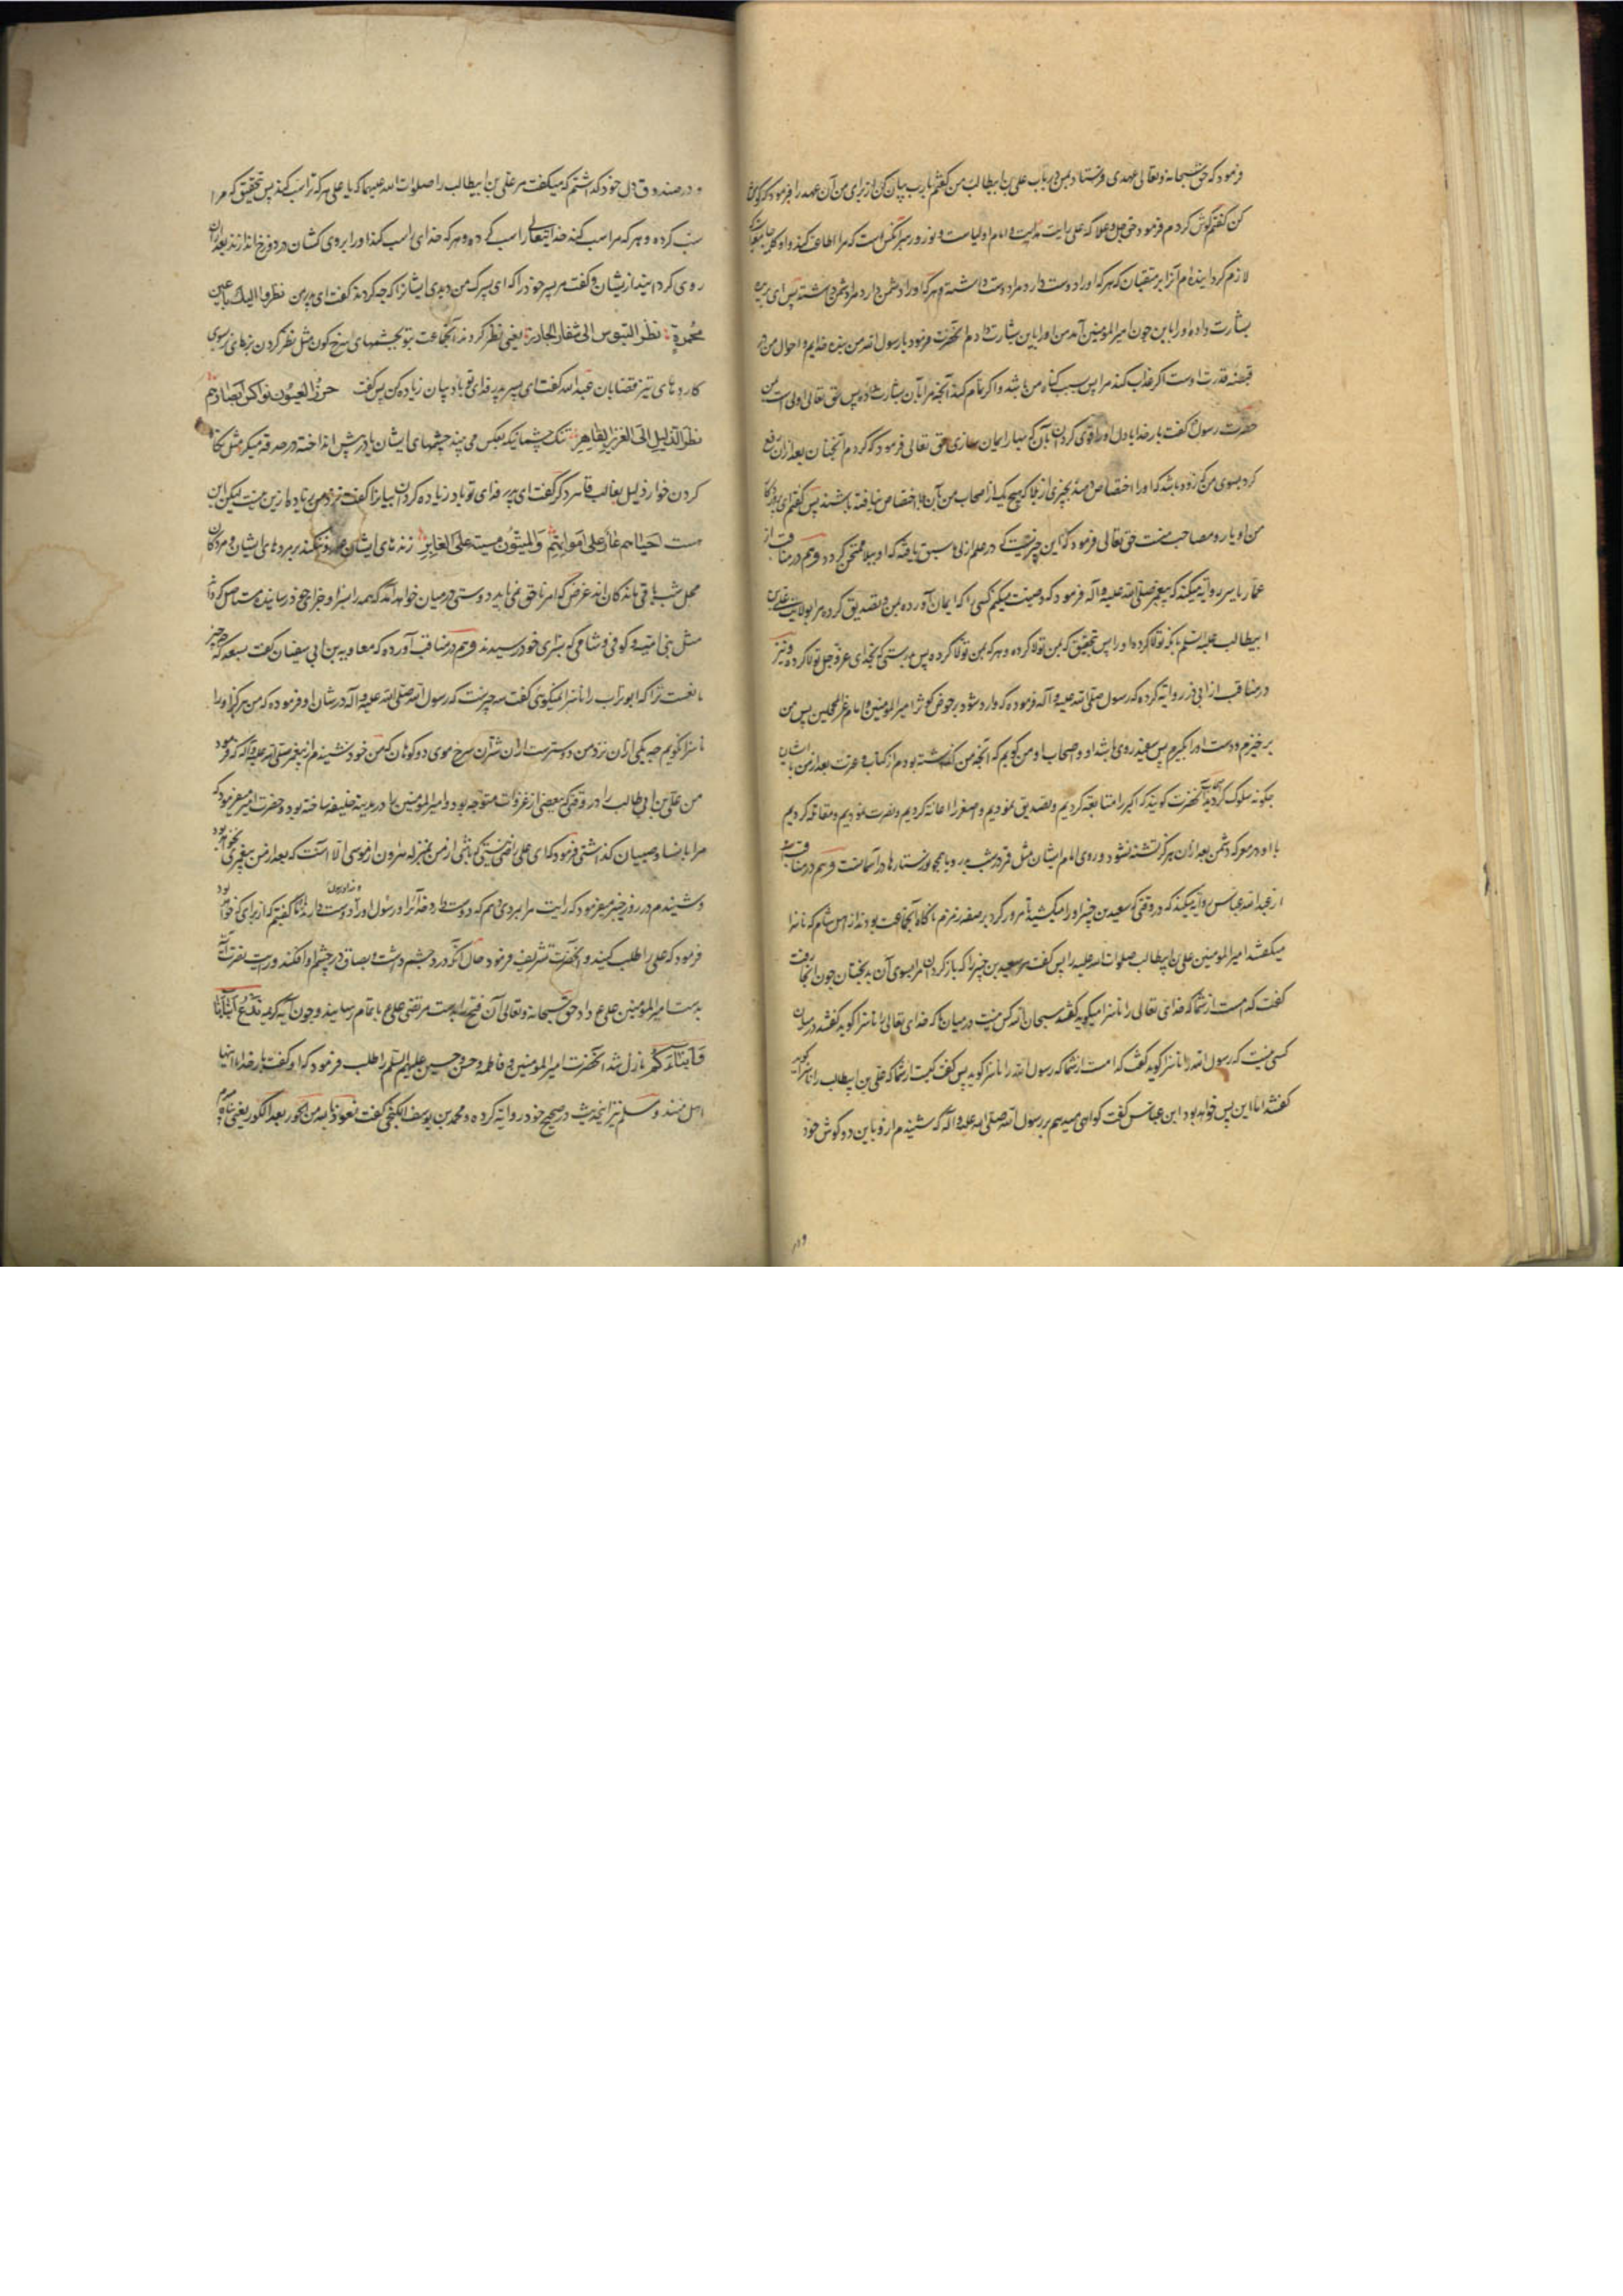 فرمود که حق سبحانه و تعالی عهدی فرستاد بمن در باب علی بن ابیطالب من گفتم یا رب بیان کن از برای من آن عهد را فرمود که گوش
کن گفتم گوش کردم فرمود حق جل و علا که علی رایت هدایت و امام اولیاست و نور هر آنکس است که مرا اطاعت کند و او کلمه
لازم گردانیده‌ام آنرا بر متقیان که هر که او را دوست دارد مرا دوست داشته و هر که او را دشمن دارد مرا دشمن داشته پس ای
بشارت داده او را باین چون امیرالمؤمنین آمد من او را باین بشارت دادم آنحضرت فرمود یا رسول الله من بنده خدایم و احوال من در
قبضه قدرت اوست اگر عذاب کند مرا پس بسبب گناه من باشد و اگر تمام کند آنچه مرا بآن بشارت داده پس حق تعالی اولی است
حضرت رسول گفت بار خدایا دل او را بآن بهار ایمان سازی حق تعالی فرمود که کردم آنچنان بعد از آن رفع
کرد بسوی من که زود باشد که او را اختصاص دهند بچیزی از بلا که هیچ یک از اصحاب من بآن بلا اختصاص نیافته باشند پس گفتم ای پروردگار
من او یار و مصاحب منست حق تعالی فرمود که این چیزیست که در علم ازلی سبق یافته که او ببلا ممتحن گردد و هم در مناقب از
عمار یاسر روایة میکند که پیغمبر صلی الله علیه و آله فرمود که وصیت میکنم کسی را که ایمان آورده بمن و تصدیق کرده مرا بولایت علی بن
ابیطالب علیه السلم هر که تولا کرده او را پس بتحقیق که بمن تولا کرده و هر که بمن تولا کرده پس بدرستی که بخدای عز و جل تولا کرده و نیز
در مناقب از ابی ذر روایة کرده که رسول صلی الله علیه و آله فرموده که وارد شود بر حوض کوثر امیرالمؤمنین و امام غر المحجلین پس من
برخیزم و دست او را بگیرم پس سفید روی باشد او و اصحاب او من گویم که آنچه من گذاشته بودم از کتاب و عترت بعد از من با ایشان
چگونه سلوک کردید آنحضرت گویند که اکبر را متابعة کردیم و تصدیق نمودیم و اصغر را اعانة کردیم و نصرت نمودیم و مقاتله کردیم
با او در معرکه دشمن بعد از آن هرگز تشنه نشود و روی امام ایشان مثل قمر در شب بدر و یا همچو نور ستارها در آسمانست و هم در مناقب
از عبد الله عباس روایة میکند که در وقتی که سعید بن جبیر او را میکشید مرور کرد بر صفه زمزم ناگاه آنجا جماعت بودند از اهل شام که ناسزا
میگفتند امیرالمؤمنین علی بن ابیطالب صلوات الله علیه را پس گفت مر سعید بن جبیر را که بازگردان مرا بسوی آن بدبختان چون آنجا رفت
گفت که است از شما که خدای تعالی را ناسزا میگوید گفتند سبحان الله کس نیست در میان ما که خدای تعالی را ناسزا گوید گفتند در میان
کسی نیست که رسول الله را ناسزا گوید گفت که است از شما که رسول الله را ناسزا گوید پس گفت کیست از شما که علی بن ابیطالب را ناسزا گوید
گفتند اما این پس خواهد بود ابن عباس گفت گواهی میدهم بر رسول الله صلی الله علیه و آله که شنیدم از و باین دو گوش خود
و در
و در صندوق دل خود گذاشتم که میگفت مر علی بن ابیطالب را صلوات الله علیهما که یا علی هر که ترا سب کند پس بتحقیق که مرا
سب کرده و هر که مرا سب کند خدایتعالی را سب کرده و هر که خدای را سب کند او را بروی کشان در دوزخ اندازند بعد از آن
روی گردانید از یشان و گفت مر پسر خود را که ای پسرک من دیدی ایشانرا که چه کردند گفت ای پدر من نظروا الیک باعین
محمرة نظر التیوس الی شفار الجازر یعنی نظر کردند آنجماعت بتو بچشمهای سرخ گون مثل نظر کردن بزهای نر بسوی
کاردهای تیز قصابان عبد الله گفت ای پسر پدر فدای تو باد بیان زیاده کن پس گفت خزر العیون نواکس ابصارهم
نظر الذلیل الی العزیز القاهر تنگ چشمانیکه بعکس می بینند چشمهای ایشان در پیش انداخته در حدقه میگردد مثل نگاه
کردن خوار ذلیل بغالب قاهر دگر گفت ای پدر فدای تو باد زیاده گردان بیانرا گفت نزد من زیاده از این نیست لیکن این
هست احیاءهم عار علی امواتهم والمیتون مسبة علی الغابر زندهای ایشان عار و ننگند بر مردهای ایشان و مردگان
محل سب باقی ماندگان‌اند غرض که امر ناحق نمی‌آید دوستی در میان خواهد آمد که همه را بسزا و جزای خود رسانیده مستاصل گرداند
مثل بنی امیه و کوفی و شامی که بسزای خود رسیدند و هم در مناقب آورده که معاویه بن ابی سفیان گفت بسعد که چه چیز
مانعست ترا که ابوتراب را ناسزا نمیگوئی گفت سه چیزست که رسول الله صلی الله علیه و آله در شان او فرموده که من هرگز او را
ناسزا نگویم چه یکی از آن نزد من دوسترست از آن شتران سرخ موی دو کوهان که من خود شنیدم از پیغمبر صلی الله علیه و آله که فرمود
من علی بن ابی طالب را در وقتی که ببعضی از غزوات متوجه بود و امیرالمؤمنین را در مدینة خلیفه ساخته بود و حضرت امیر میفرمود که
مرا با نساء و صبیان گذاشتی فرمود که ای علی راضی نیستی که باشی از من بمنزله هرون از موسی الا آنست که بعد از من پیغمبری نخواهد بود
و شنیدم در روز خیبر میفرمود که رایت مرا بمردی دهم که دوست دارد خدا را و رسول او را و خدا و رسول او را دوست دارند ما گفتیم که از برای که خواهد بود
فرمود که علی را طلب کنید و آنحضرت تشریف فرمود حال آنکه درد چشم داشت و بصاق در چشم او افکند و رایت نصرت آیة
بدست امیرالمؤمنین علی ع داد حق سبحانه و تعالی آن فتح را بدست مرتضی علی ع باتمام رسانید و چون آیه کریمه ندع ابناءنا
و ابناءکم نازل شد آنحضرت امیرالمؤمنین و فاطمه و حسن و حسین علیهم السلم را طلب فرمود که او گفت بار خدایا اینها
اهل منند و مسلم نیز اینحدیث در صحیح خود روایة کرده و محمد بن یوسف الکنجی گفت نعوذ بالله من الحور بعد الکور یعنی پناه